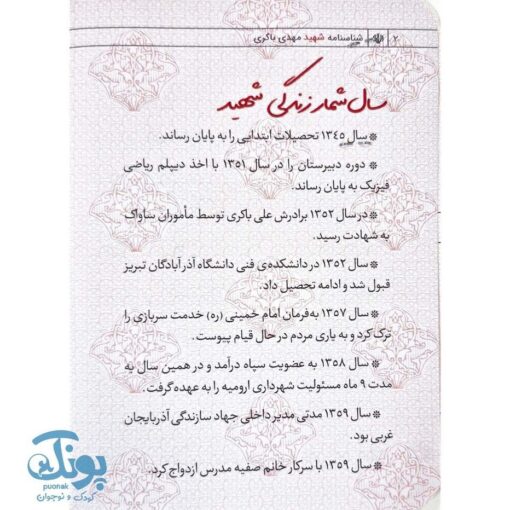 ۲ شناسنامه شهید مهدی باکری
سال شمار زندگی شهید
❊ سال ۱۳٤٥ تحصیلات ابتدایی را به پایان رساند.
❊ دوره دبیرستان را در سال ۱۳٥۱ با اخذ دیپلم ریاضی
فیزیک به پایان رساند.
❊ در سال ۱۳٥۲ برادرش علی باکری توسط مأموران ساواک
به شهادت رسید.
❊ سال ۱۳٥۲ در دانشکده‌ی فنی دانشگاه آذرآبادگان تبریز
قبول شد و ادامه تحصیل داد.
❊ سال ۱۳٥۷ به‌فرمان امام خمینی (ره) خدمت سربازی را
ترک کرد و به یاری مردم در حال قیام پیوست.
❊ سال ۱۳٥۸ به عضویت سپاه درآمد و در همین سال به
مدت ۹ ماه مسئولیت شهرداری ارومیه را به عهده گرفت.
❊ سال ۱۳٥۹ مدتی مدیر داخلی جهاد سازندگی آذربایجان
غربی بود.
❊ سال ۱۳٥۹ با سرکار خانم صفیه مدرس ازدواج کرد.
پونک
puonak
کودک و نوجوان